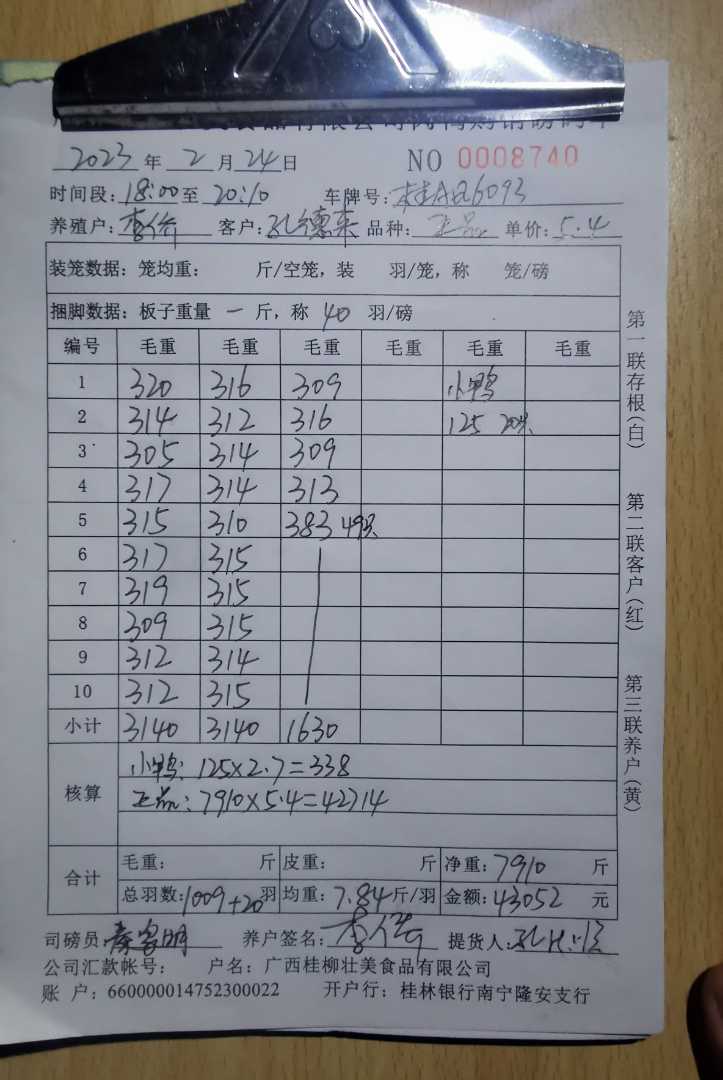 2023年2月24日 NO 0008740
时间段:18:00至20:10 车牌号:桂A
养殖户:李 客户:孔德来 品种:正品 单价:5.4
装笼数据:笼均重: 斤/空笼,装 羽/笼,称 笼/磅
捆脚数据:板子重量 一 斤,称 40 羽/磅
编号 毛重 毛重 毛重 毛重 毛重 毛重
1 320 316 309 小鸭
2 314 312 316 125 20只
3 305 314 309
4 317 314 313
5 315 310 383 49只
6 317 315
7 319 315
8 309 315
9 312 314
10 312 315
小计 3140 3140 1630
核算 小鸭:125×2.7=338
正品:7910×5.4=42714
合计 毛重: 斤 皮重: 斤 净重:7910 斤
总羽数:1009+20羽 均重:7.84斤/羽 金额:43052 元
司磅员 养户签名: 提货人:
公司汇款帐号: 户名:广西桂柳壮美食品有限公司
账 户:660000014752300022 开户行:桂林银行南宁隆安支行
第一联存根(白) 第二联客户(红) 第三联养户(黄)